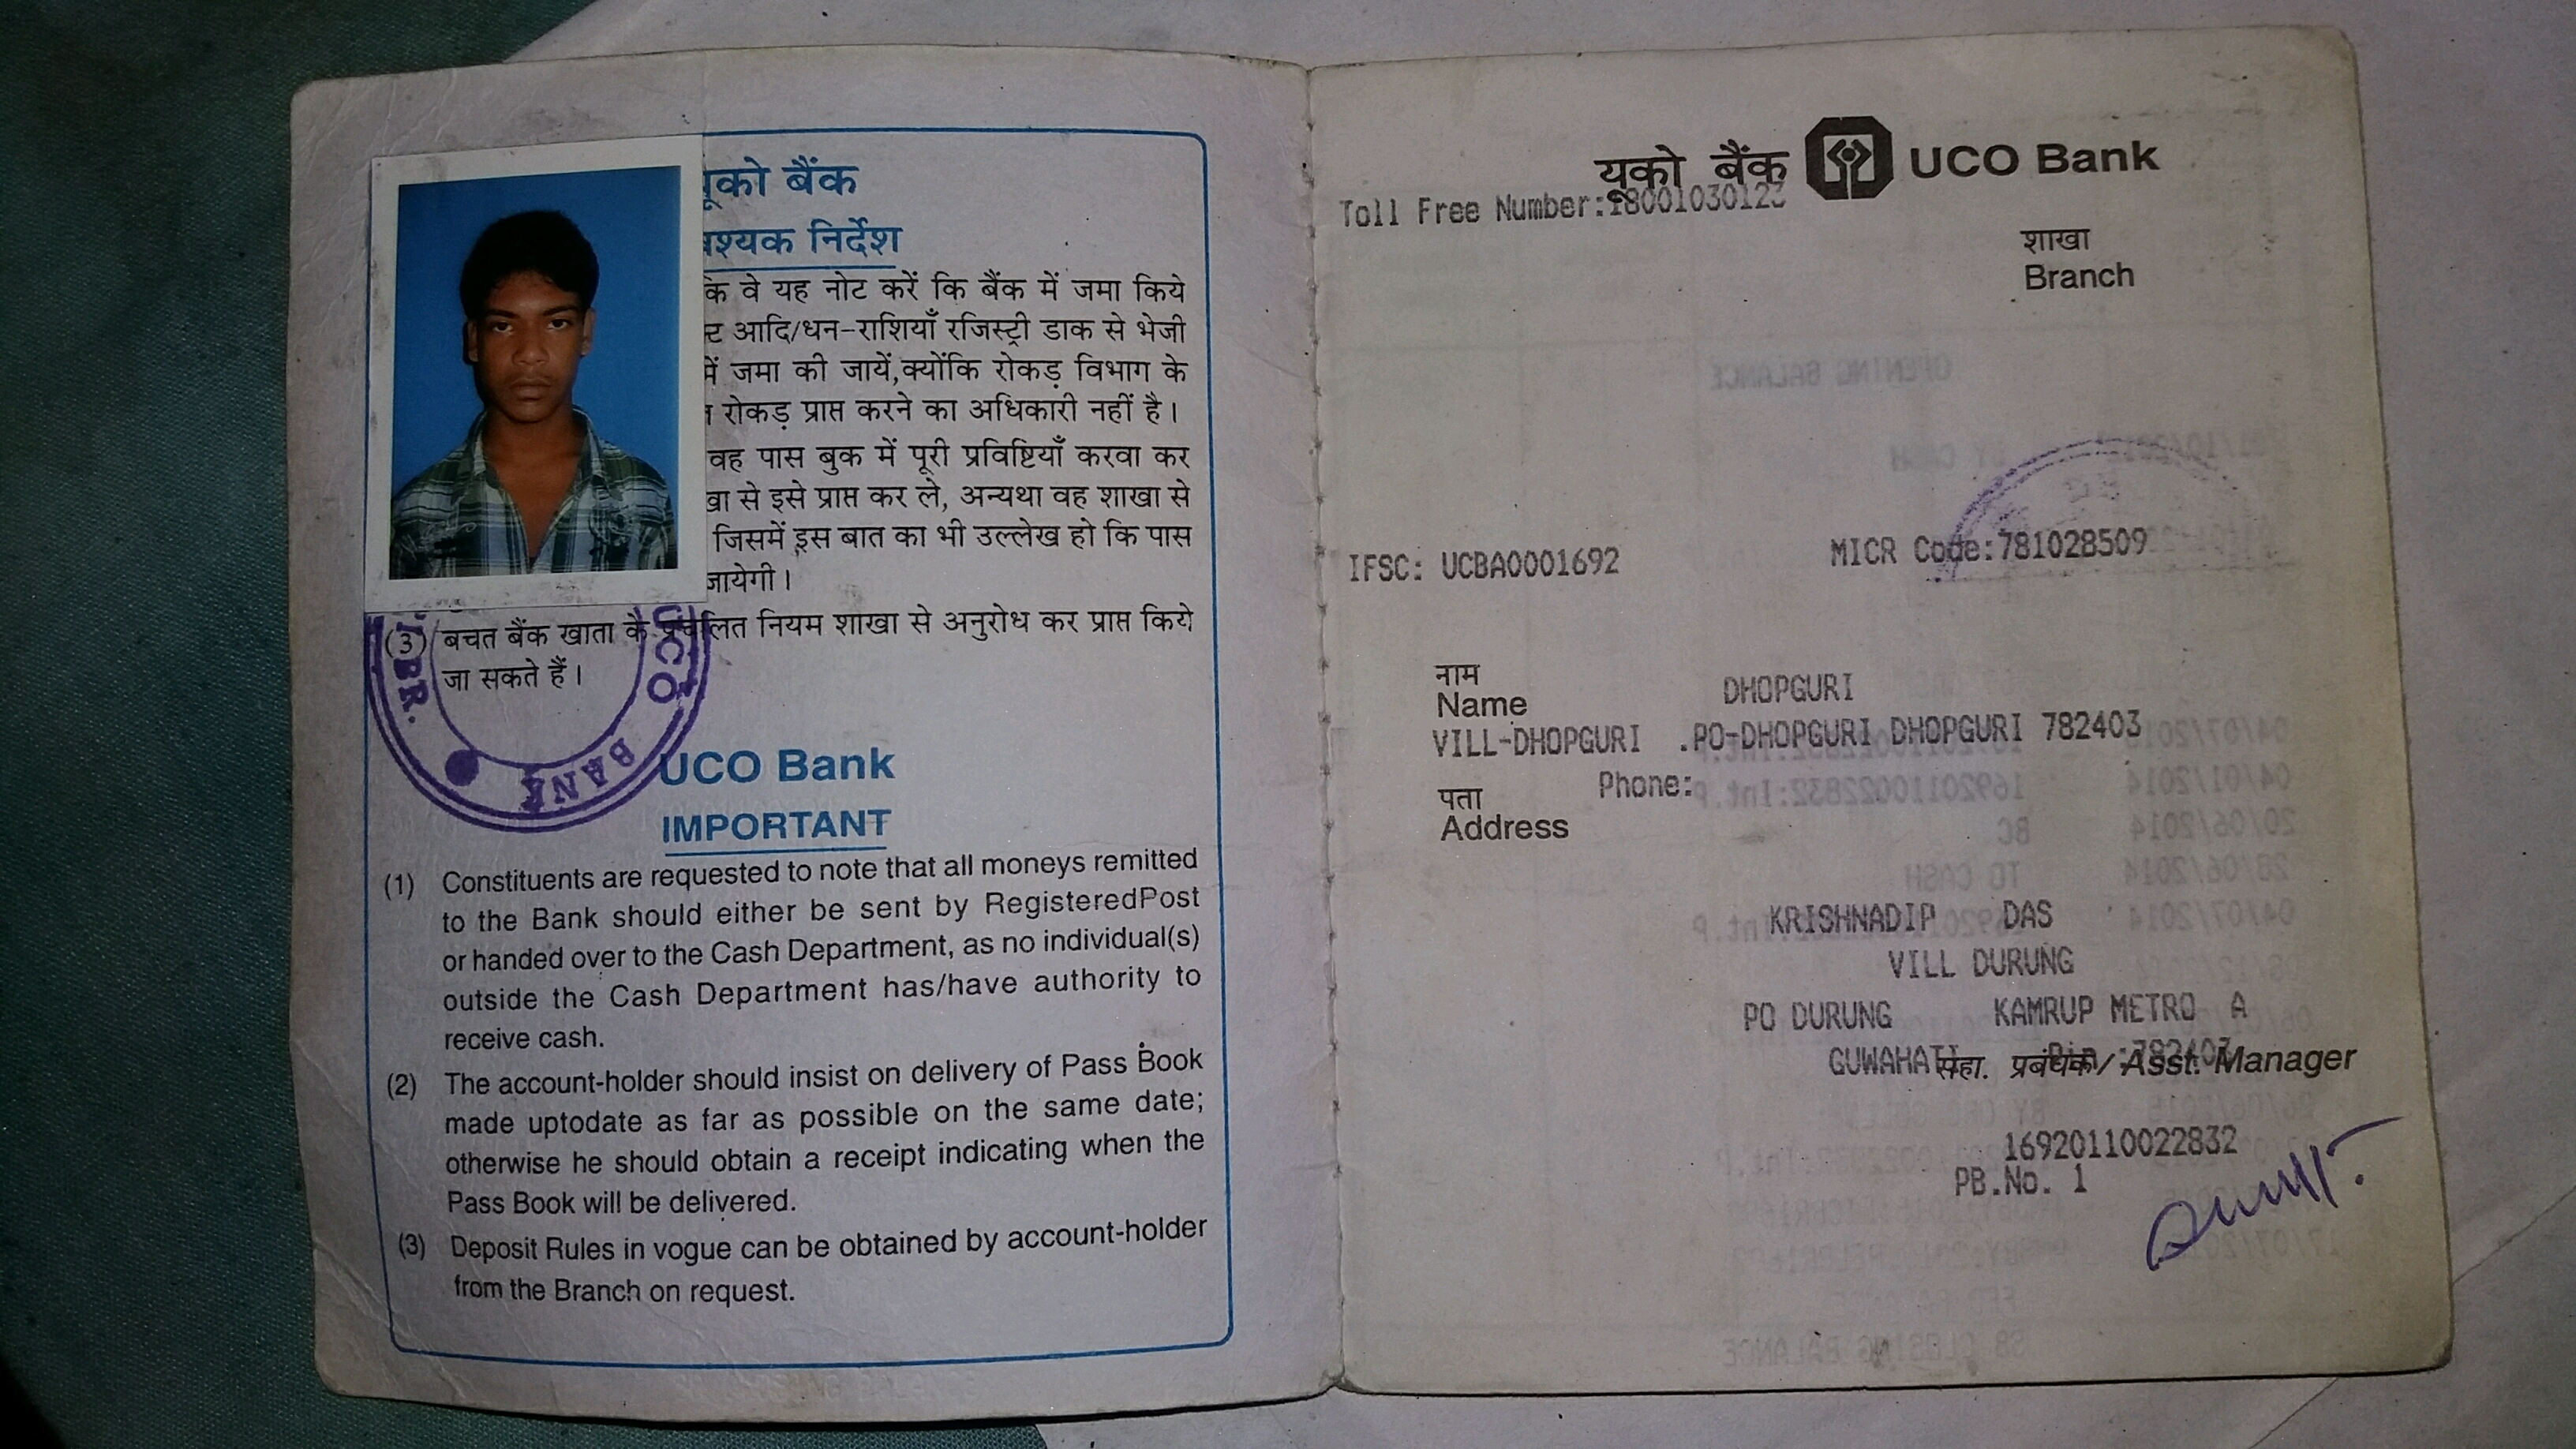 यूको बैंक
वश्यक निर्देश
कि वे यह नोट करें कि बैंक में जमा किये
आदि/धन-राशियाँ रजिस्ट्री डाक से भेजी
में जमा की जायें,क्योंकि रोकड़ विभाग के
रोकड़ प्राप्त करने का अधिकारी नहीं है।
वह पास बुक में पूरी प्रविष्टियाँ करवा कर
से इसे प्राप्त कर ले, अन्यथा वह शाखा से
जिसमें इस बात का भी उल्लेख हो कि पास
जायेगी।
(3) बचत बैंक खाता के प्रचलित नियम शाखा से अनुरोध कर प्राप्त किये
जा सकते हैं।
UCO BANK
BR.
UCO Bank
IMPORTANT
(1) Constituents are requested to note that all moneys remitted
to the Bank should either be sent by RegisteredPost
or handed over to the Cash Department, as no individual(s)
outside the Cash Department has/have authority to
receive cash.
(2) The account-holder should insist on delivery of Pass Book
made uptodate as far as possible on the same date;
otherwise he should obtain a receipt indicating when the
Pass Book will be delivered.
(3) Deposit Rules in vogue can be obtained by account-holder
from the Branch on request.
यूको बैंक UCO Bank
Toll Free Number:18001030123
शाखा
Branch
IFSC: UCBA0001692 MICR Code:781028509
नाम
Name DHOPGURI
VILL-DHOPGURI .PO-DHOPGURI DHOPGURI 782403
Phone:
पता
Address
KRISHNADIP DAS
VILL DURUNG
PO DURUNG KAMRUP METRO A
GUWAHATI Pin :782403
सहा. प्रबंधक/Asst. Manager
16920110022832
PB.No. 1